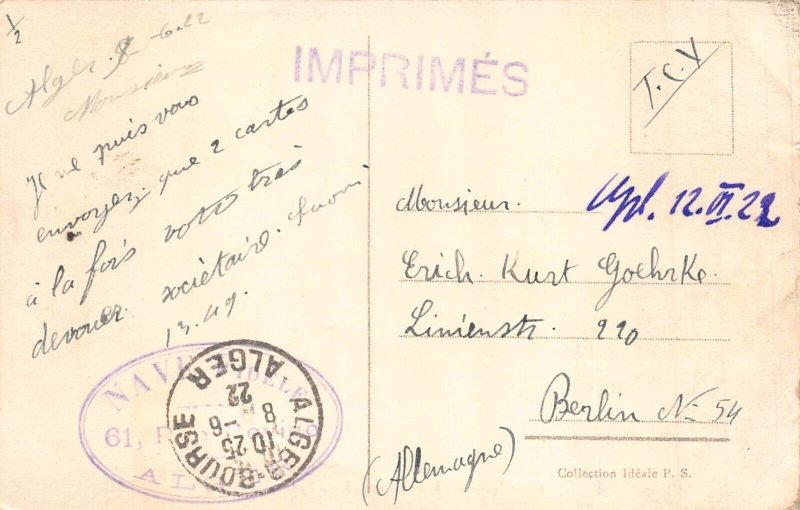 1/2
Alger. 8-6-22
Monsieur
Je ne puis vous
envoyez que 2 cartes
à la fois votre très
devouer sociétaire.
1349.
IMPRIMÉS
T.C.V
Monsieur. 12.VI.22
Erich. Kurt Goehrke.
Linienstr. 220
Berlin N- 54
(Allemagne)
Collection Idéale P. S.
NAV
61, R
AL
ALGER ALGER
BOURSE
10 25
8 - 6
22